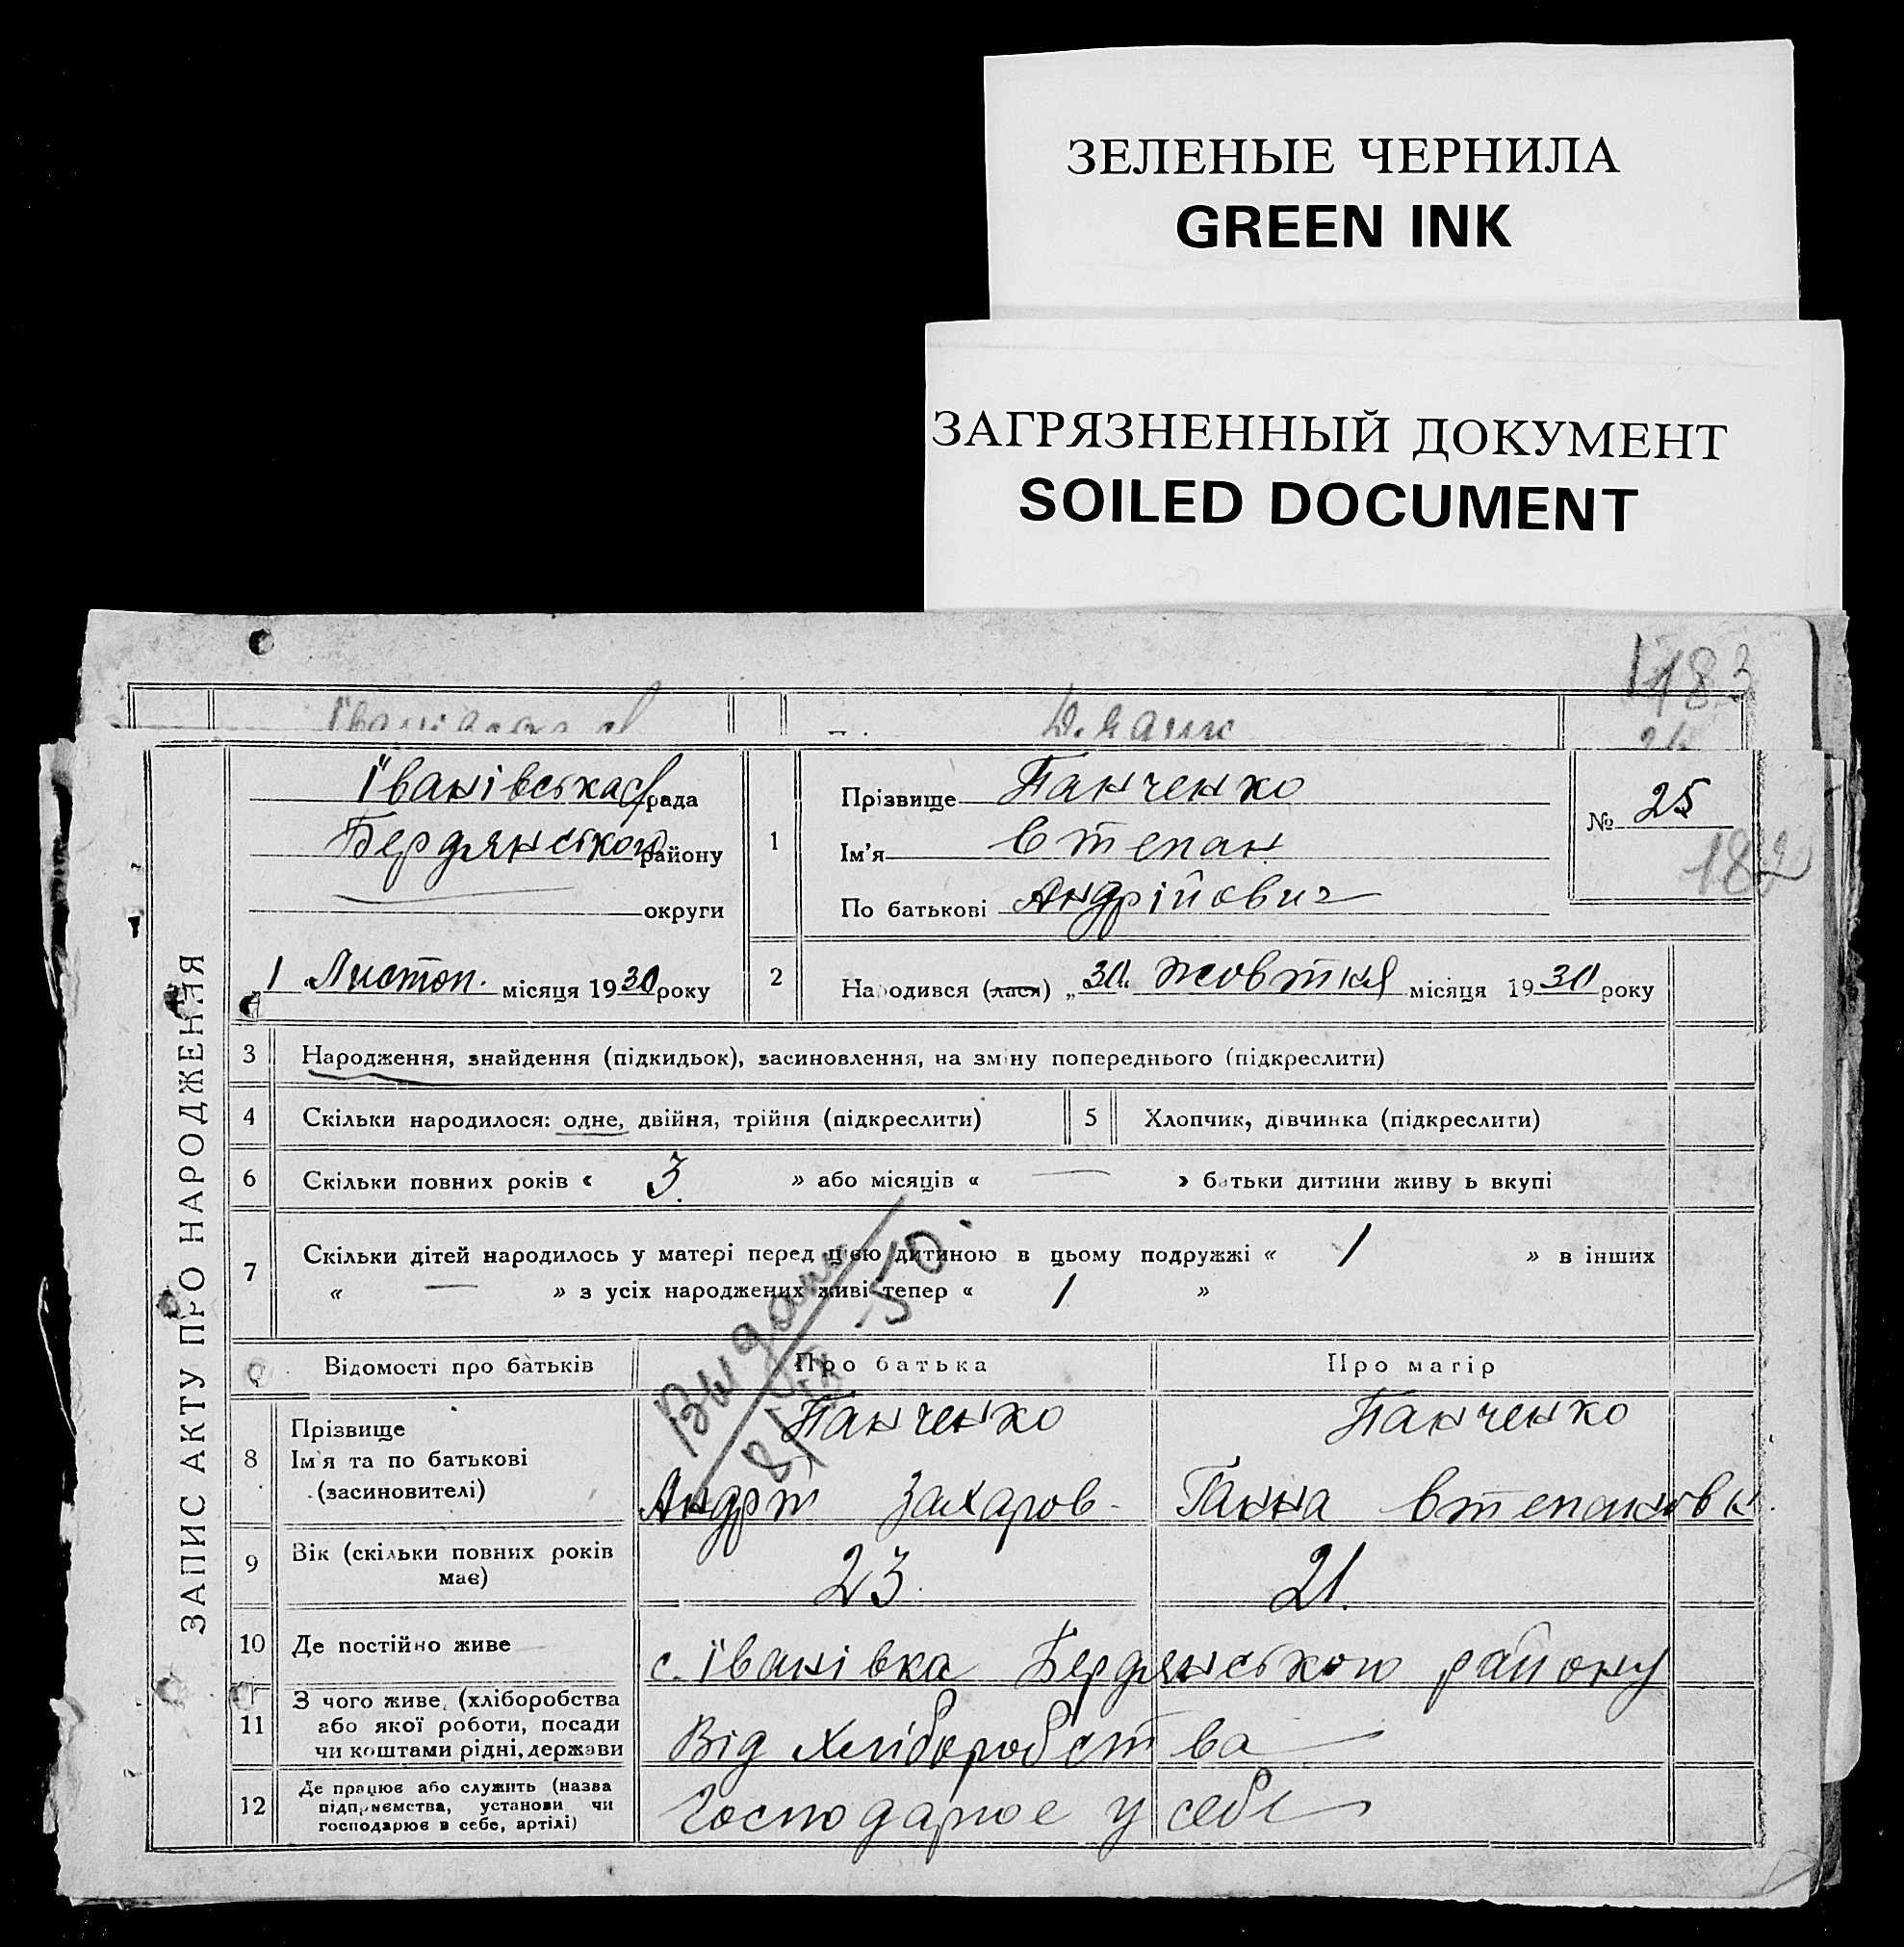 ЗЕЛЕНЫЕ ЧЕРНИЛА
GREEN INK
ЗАГРЯЗНЕННЫЙ ДОКУМЕНТ
SOILED DOCUMENT
183
ЗАПИС АКТУ ПРО НАРОДЖЕННЯ
Іванівська с/рада
Бердянського району
округи
1 Листоп. місяця 1930 року
1
Прізвище Панченко
Ім'я Степан
По батькові Андрійович
№ 25
182
2 Народився (лася) „30" жовтня місяця 1930 року
3 Народження, знайдення (підкидьок), засиновлення, на зміну попереднього (підкреслити)
4 Скільки народилося: одне, двійня, трійня (підкреслити)
5 Хлопчик, дівчинка (підкреслити)
6 Скільки повних років « 3. » або місяців « — » батьки дитини живуть вкупі
7 Скільки дітей народилось у матері перед цією дитиною в цьому подружжі « 1 » в інших
« — » з усіх народжених живі тепер « 1 »
Відомості про батьків Про батька Про матір
8 Прізвище
Ім'я та по батькові
(засновителі)
Панченко
Андрій Захаров-
Панченко
Ганна Степановн.
9 Вік (скільки повних років
має)
23.
21.
10 Де постійно живе с. Іванівка Бердянського району
11 З чого живе, (хліборобства
або якої роботи, посади
чи коштами рідні, держави
Від хліборобства
12 Де працює або служить (назва
підприємства, установи чи
господарює в себе, артілі)
Господарює у себе